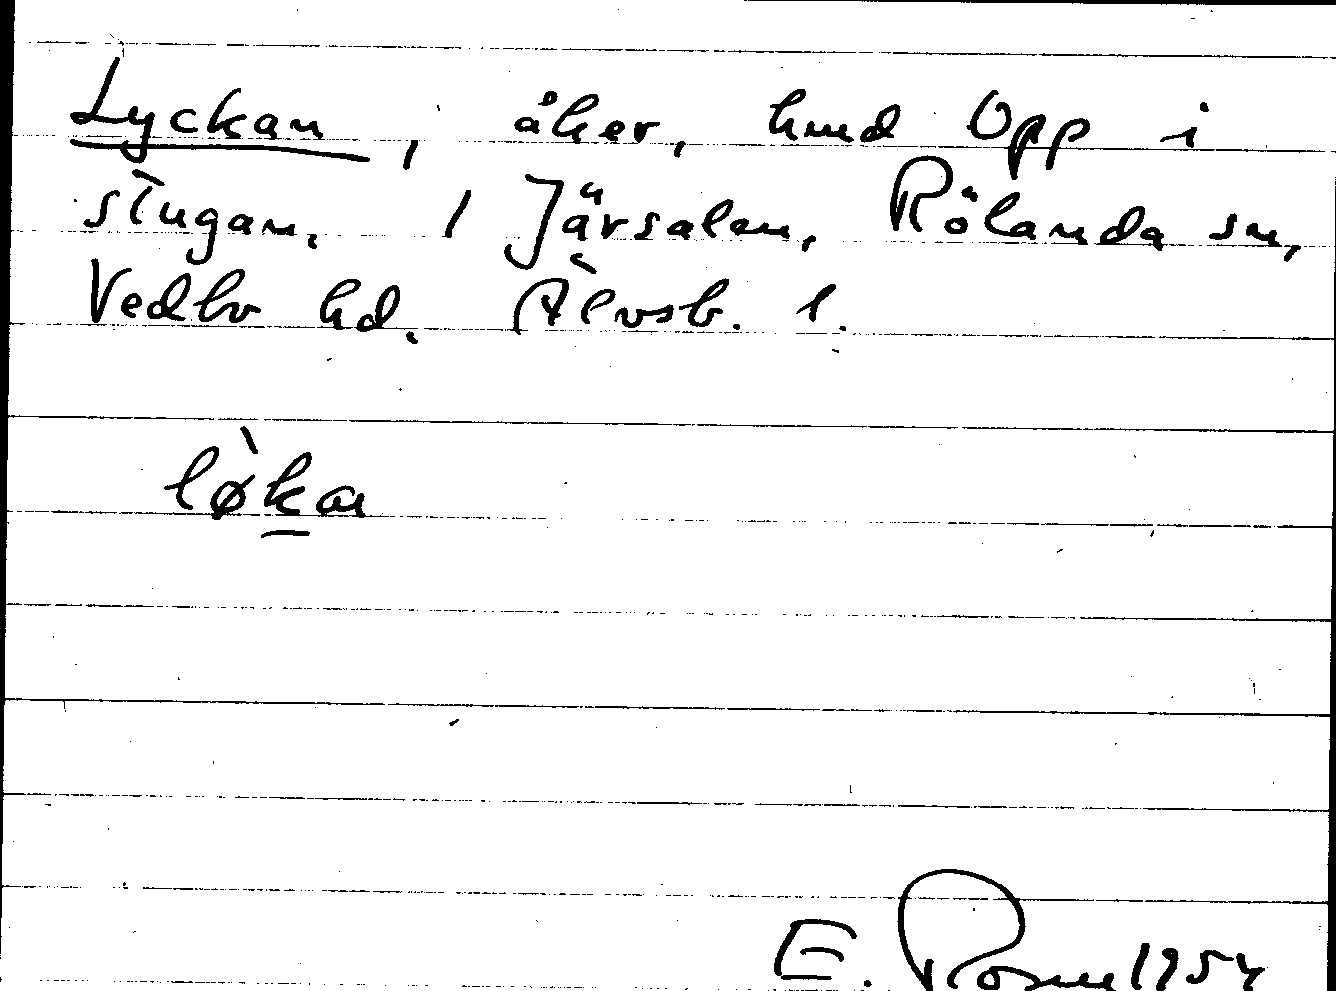 Lyckan, åker, hmd Opp i
stugan, 1 Järsalen, Rölanda sn,
Vedbo hd. Älvsb. l.
lø̀kan
E. Rosm 1954